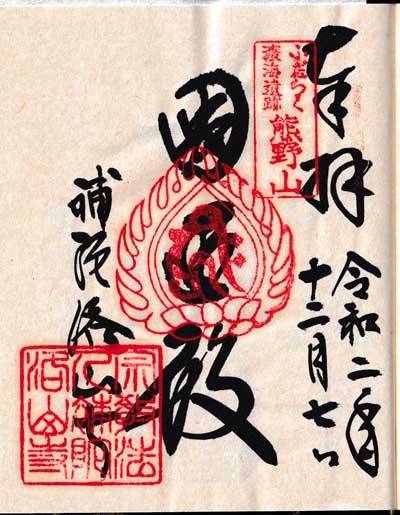 奉拝
令和二年
十二月七日
渡海遺跡
熊野山
圓通殿
補陀洛山寺
宗教法
人補陀
洛山寺